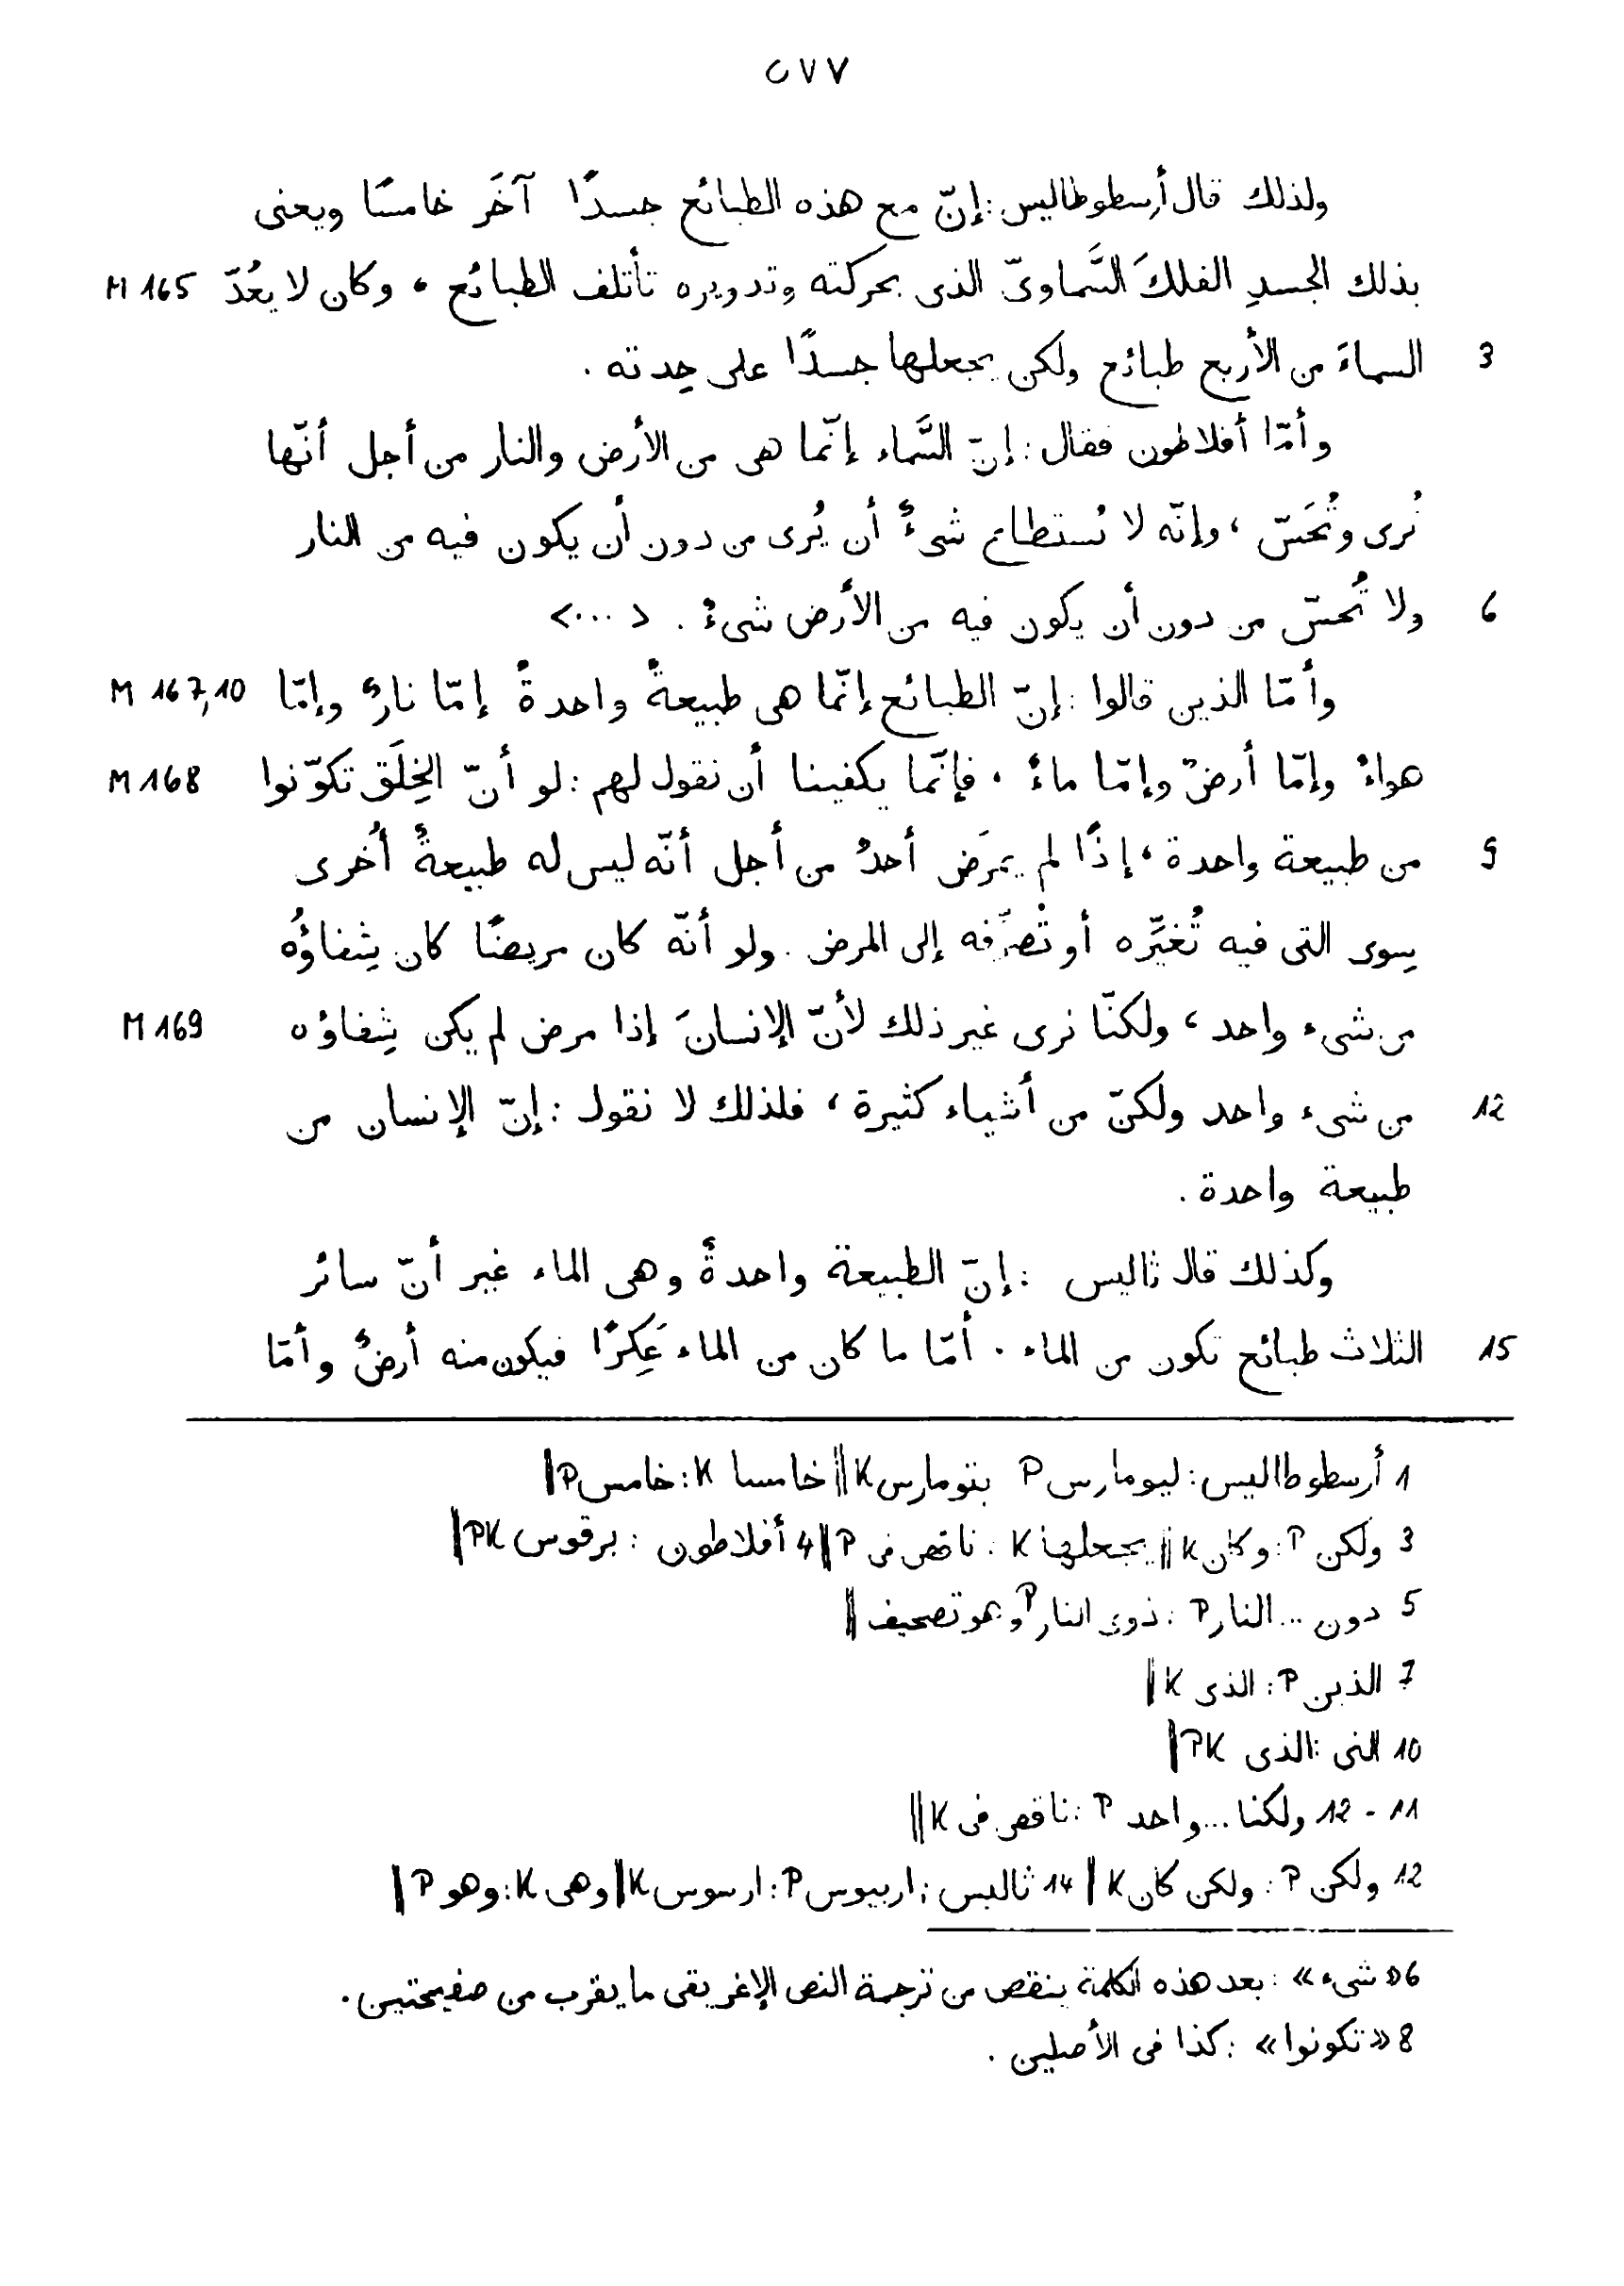 ٥٧٧
ولذلك قال أرسطوطاليس: إنّ مع هذه الطبائع جسدًا آخَر خامسًا ويعنى
بذلك الجسدِ الفلكَ السَّماوىّ الذى بحركته وتدويره تأتلف الطبائع، وكان لا يعُدّ M 165
3 السماءَ من الأربع طبائع ولكن يجعلها جسدًا على حِدته.
وأمّا أفلاطون فقال: إنّ السَّماء إنّما هى من الأرض والنار من أجل أنّها
تُرى وتُحَسّ، وإنّه لا تستطاع شىءٌ أن يُرى من دون أن يكون فيه من النار
6 ولا تُحسّ من دون أن يكون فيه من الأرض شىءٌ. <...>
وأمّا الذين قالوا: إنّ الطبائع إنّما هى طبيعةٌ واحدةٌ إمّا نارٌ وإمّا M 167,10
هواءٌ وإمّا أرضٌ وإمّا ماءٌ، فإنّما يكفينا أن نقول لهم: لو أنّ الخِلَق تكوّنوا M 168
9 من طبيعة واحدة، إذًا لم يمرَض أحدٌ من أجل أنّه ليس له طبيعةٌ أُخرى
سِوى التى فيه تُغيّره أو تُصرِّفه إلى المرض. ولو أنّه كان مريضًا كان شِفاؤُه
من شىء واحد، ولكنّا نرى غير ذلك لأنّ الإنسانَ إذا مرض لم يكن شِفاؤه M 169
12 من شىء واحد ولكنّ من أشياء كثيرة، فلذلك لا نقول: إنّ الإنسان من
طبيعة واحدة.
وكذلك قال ثاليس: إنّ الطبيعة واحدةٌ وهى الماء غير أنّ سائر
15 الثلاث طبائع تكون من الماء. أمّا ما كان من الماء عَكِرًا فيكون منه أرضٌ وأمّا
1 أرسطوطاليس: ليومارس P بتومارس K || خامسا K: خامس P ||
3 ولكن P: وكان K || يجعلها K: ناقص فى P || 4 أفلاطون: برقوس PK ||
5 دون ... النار P: ذوى النار P وهو تصحيف ||
7 الذين P: الذى K ||
10 التى: الذى PK ||
11 - 12 ولكنا ... واحد P: ناقص فى K ||
12 ولكن P: ولكن كان K || 14 ثاليس: اربيوس P: ارسوس K || وهى K: وهو P ||
6 «شىء»: بعد هذه الكلمة ينقص من ترجمة النص الإغريقى ما يقرب من صفيحتين.
8 «تكونوا»: كذا فى الأصلين.